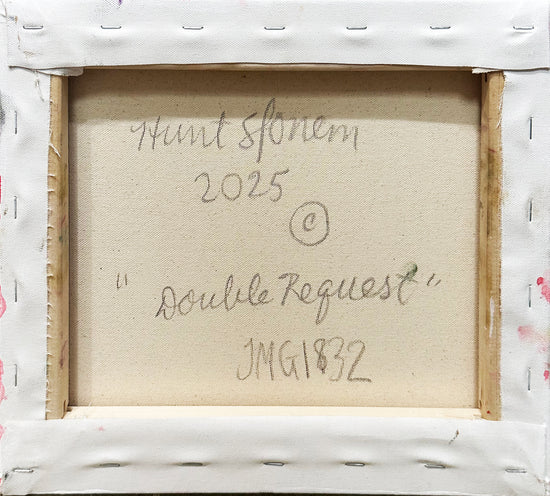 Hunt Slonem
2025
©
"Double Request"
JMG1832